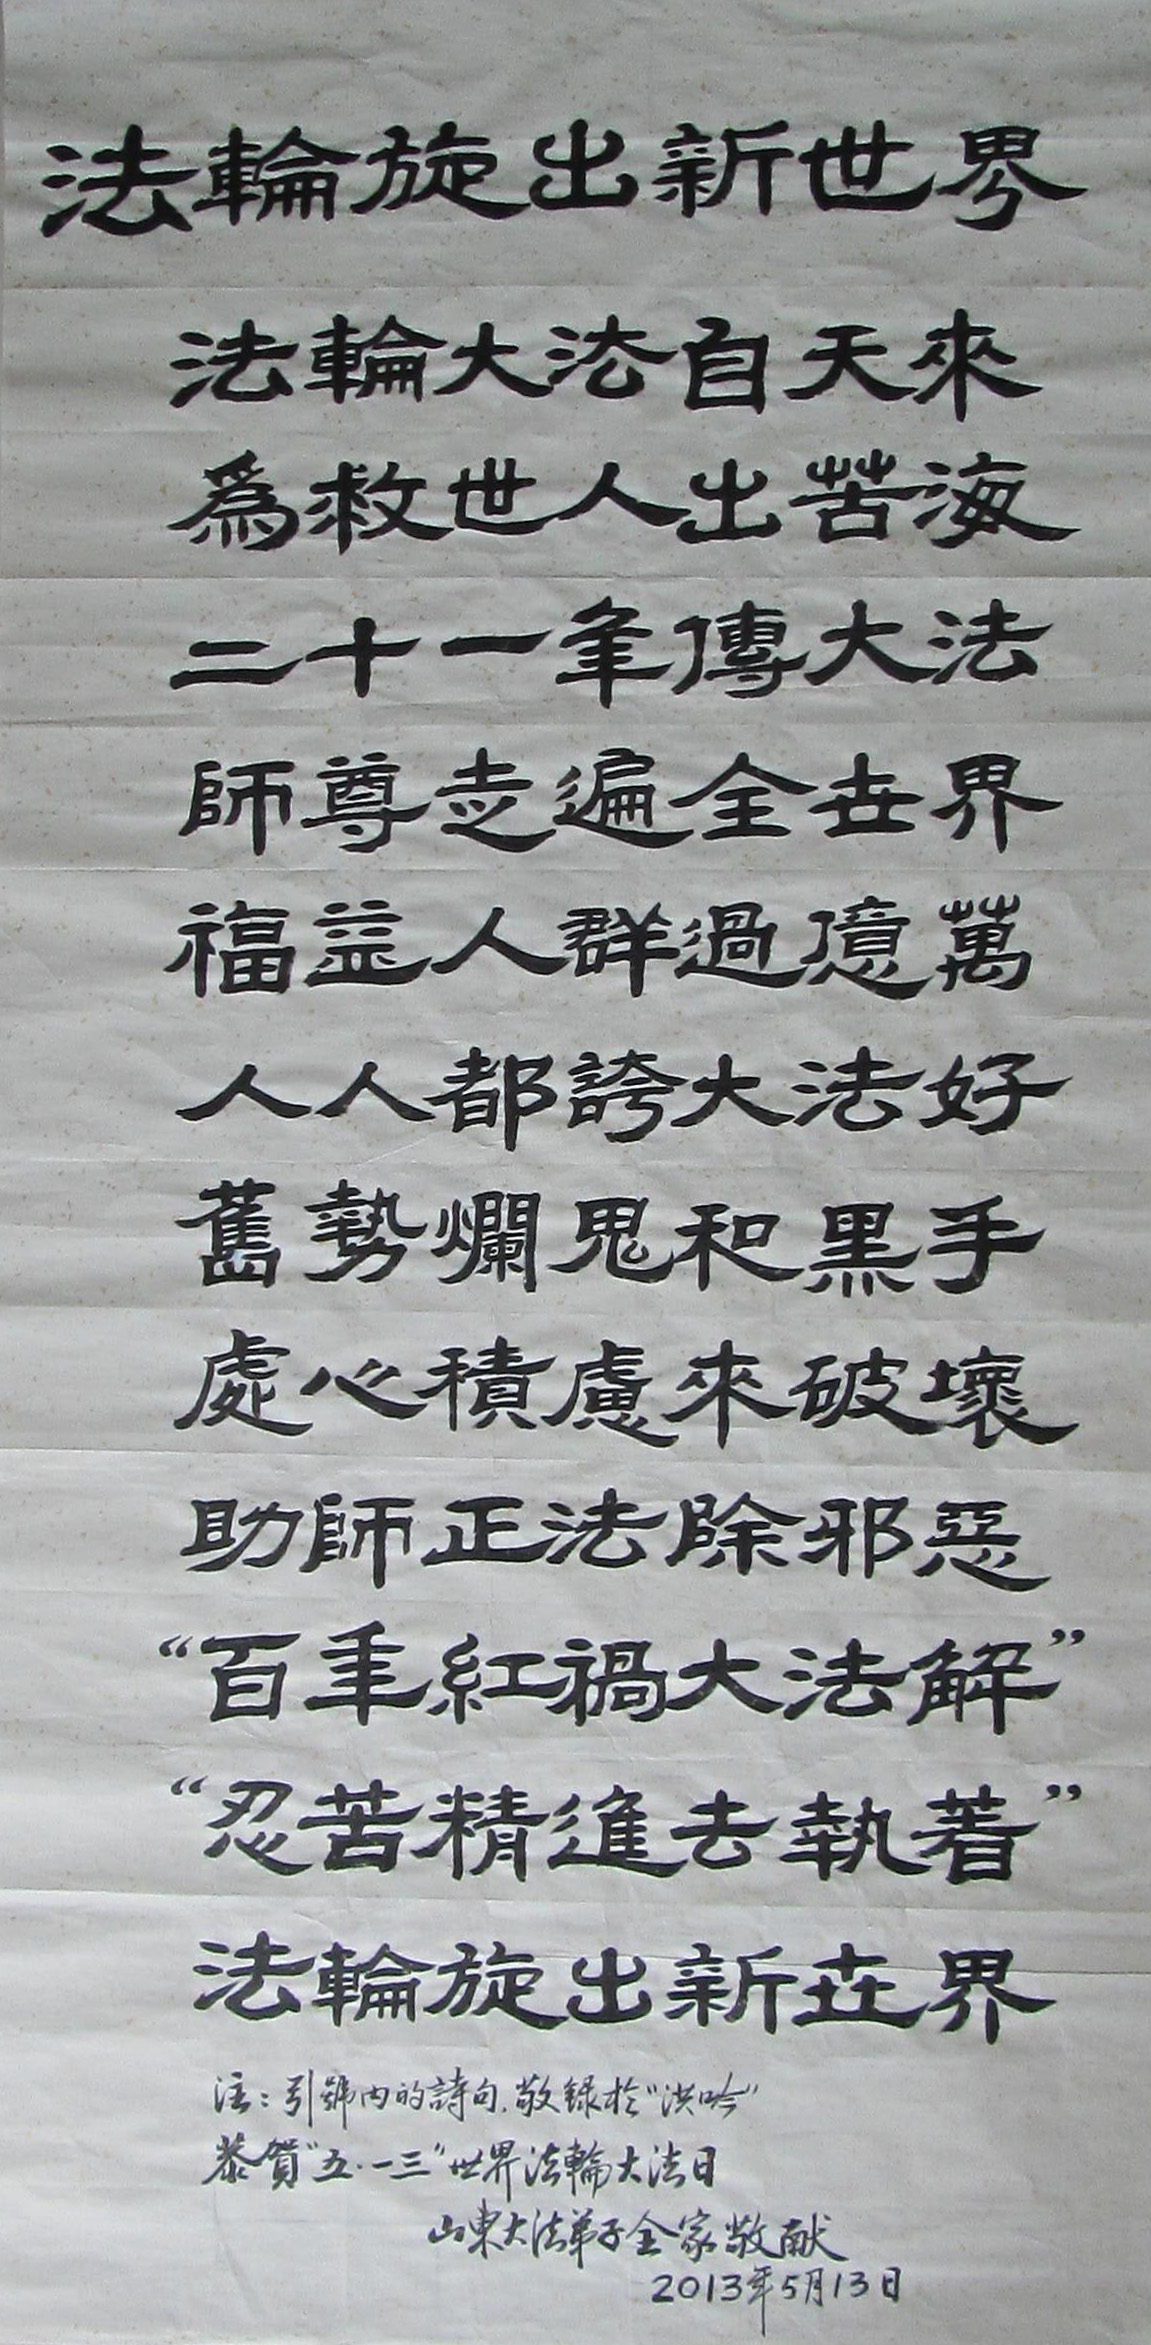 法輪旋出新世界
法輪大法自天來
爲救世人出苦海
二十一年傳大法
師尊走遍全世界
福益人群過億萬
人人都誇大法好
舊勢爛鬼和黑手
處心積慮來破壞
助師正法除邪惡
“百年紅禍大法解”
“忍苦精進去執著”
法輪旋出新世界
注：引號内的詩句，敬録於“洪吟”
恭賀“五·一三”世界法輪大法日
山東大法弟子全家敬献
2013年5月13日